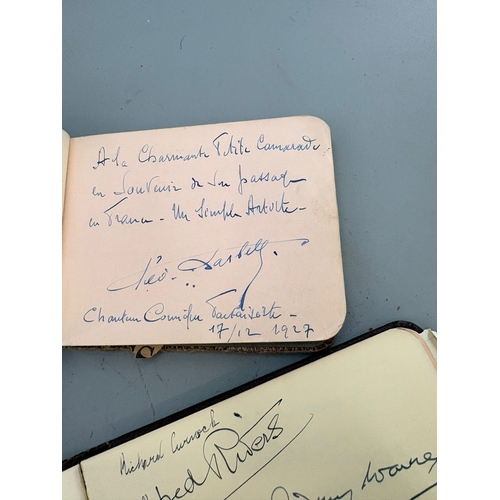 A la Charmante Petite Camarade
en Souvenir de son passage
en France - Un Simple Artiste -
Chanteur Comique Fantaisiste -
17/12 1927
Richard Curnock
Rivers
Warner